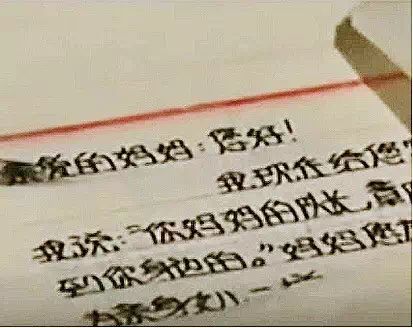 爱的妈妈:您好!
我现在给您
我说:“你妈妈的队长,
到你身边的。”妈妈您